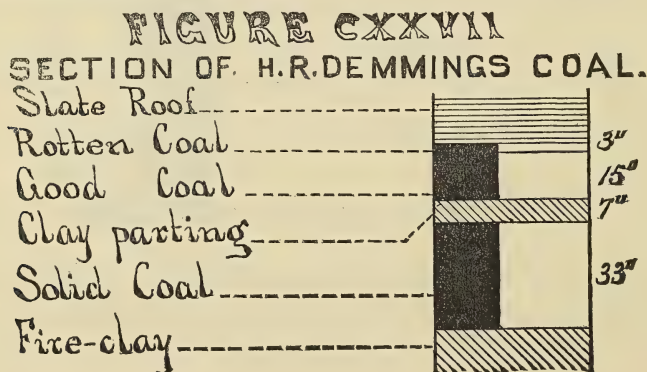 FIGURE CXXVII
SECTION OF H.R.DEMMINGS COAL.
Slate Roof
Rotten Coal 3"
Good Coal 15"
Clay parting 7"
Solid Coal 33"
Fire-clay